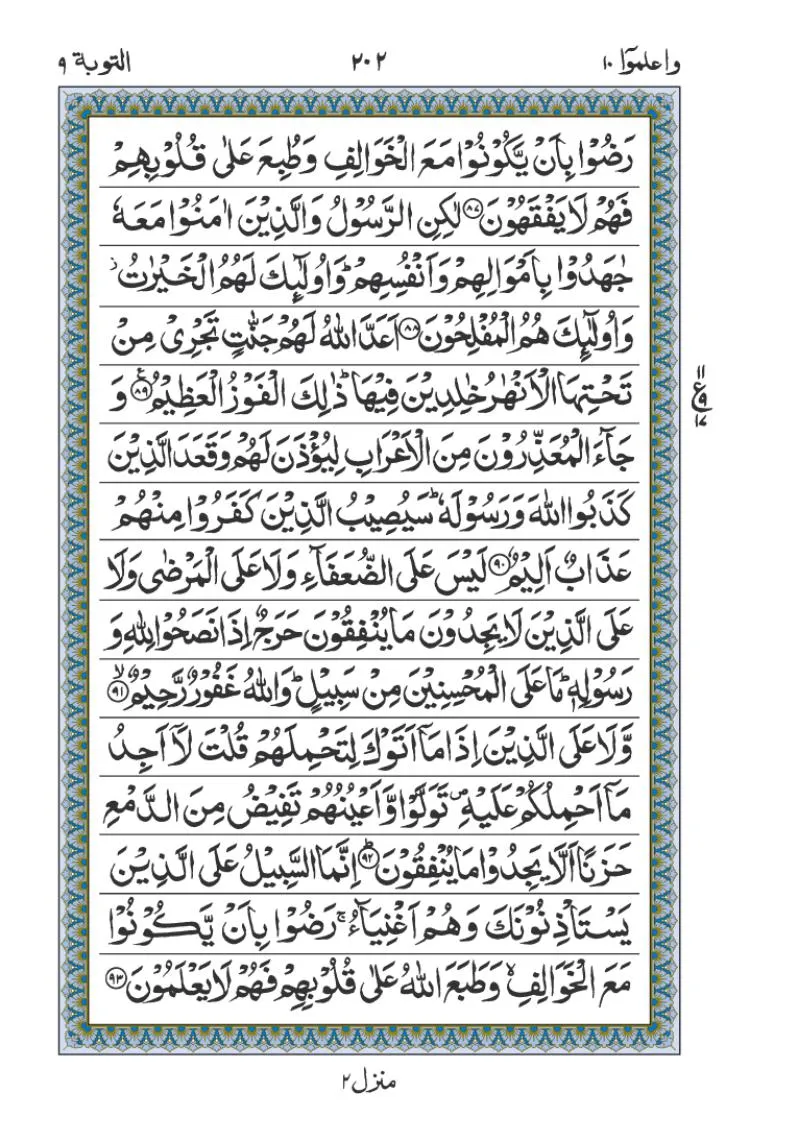 واعلموٓا ١٠
٢٠٢
التوبة ٩
رَضُوۡا بِاَنۡ يَّكُوۡنُوۡا مَعَ الۡخَوَالِفِ وَطُبِعَ عَلٰى قُلُوۡبِهِمۡ
فَهُمۡ لَا يَفۡقَهُوۡنَ ﴿٨٧﴾ لٰكِنِ الرَّسُوۡلُ وَالَّذِيۡنَ اٰمَنُوۡا مَعَهٗ
جٰهَدُوۡا بِاَمۡوَالِهِمۡ وَاَنۡفُسِهِمۡ‌ؕ وَاُولٰۤٮِٕكَ لَهُمُ الۡخَيۡرٰتُ‌ ز
وَاُولٰۤٮِٕكَ هُمُ الۡمُفۡلِحُوۡنَ ﴿٨٨﴾ اَعَدَّ اللّٰهُ لَهُمۡ جَنّٰتٍ تَجۡرِىۡ مِنۡ
تَحۡتِهَا الۡاَنۡهٰرُ خٰلِدِيۡنَ فِيۡهَا‌ؕ ذٰلِكَ الۡفَوۡزُ الۡعَظِيۡمُ ﴿٨٩﴾ وَ
١١
ع ٩
١٧
جَآءَ الۡمُعَذِّرُوۡنَ مِنَ الۡاَعۡرَابِ لِيُؤۡذَنَ لَهُمۡ وَقَعَدَ الَّذِيۡنَ
كَذَبُوا اللّٰهَ وَرَسُوۡلَهٗ‌ؕ سَيُصِيۡبُ الَّذِيۡنَ كَفَرُوۡا مِنۡهُمۡ
عَذَابٌ اَلِيۡمٌ ﴿٩٠﴾ لَيۡسَ عَلَى الضُّعَفَآءِ وَلَا عَلَى الۡمَرۡضٰى وَلَا
عَلَى الَّذِيۡنَ لَا يَجِدُوۡنَ مَا يُنۡفِقُوۡنَ حَرَجٌ اِذَا نَصَحُوۡا لِلّٰهِ وَ
رَسُوۡلِهٖ‌ؕ مَا عَلَى الۡمُحۡسِنِيۡنَ مِنۡ سَبِيۡلٍ‌ؕ وَاللّٰهُ غَفُوۡرٌ رَّحِيۡمٌ ۙ‏ ﴿٩١﴾
وَّلَا عَلَى الَّذِيۡنَ اِذَا مَاۤ اَتَوۡكَ لِتَحۡمِلَهُمۡ قُلۡتَ لَاۤ اَجِدُ
مَاۤ اَحۡمِلُكُمۡ عَلَيۡهِ ص تَوَلَّوْا وَّاَعۡيُنُهُمۡ تَفِيۡضُ مِنَ الدَّمۡعِ
حَزَنًا اَلَّا يَجِدُوۡا مَا يُنۡفِقُوۡنَؕ ﴿٩٢﴾ اِنَّمَا السَّبِيۡلُ عَلَى الَّذِيۡنَ
يَسۡتَاۡذِنُوۡنَكَ وَهُمۡ اَغۡنِيَآءُ‌ۚ رَضُوۡا بِاَنۡ يَّكُوۡنُوۡا
مَعَ الۡخَوَالِفِۙ وَطَبَعَ اللّٰهُ عَلٰى قُلُوۡبِهِمۡ فَهُمۡ لَا يَعۡلَمُوۡنَ ﴿٩٣﴾
منزل ٢